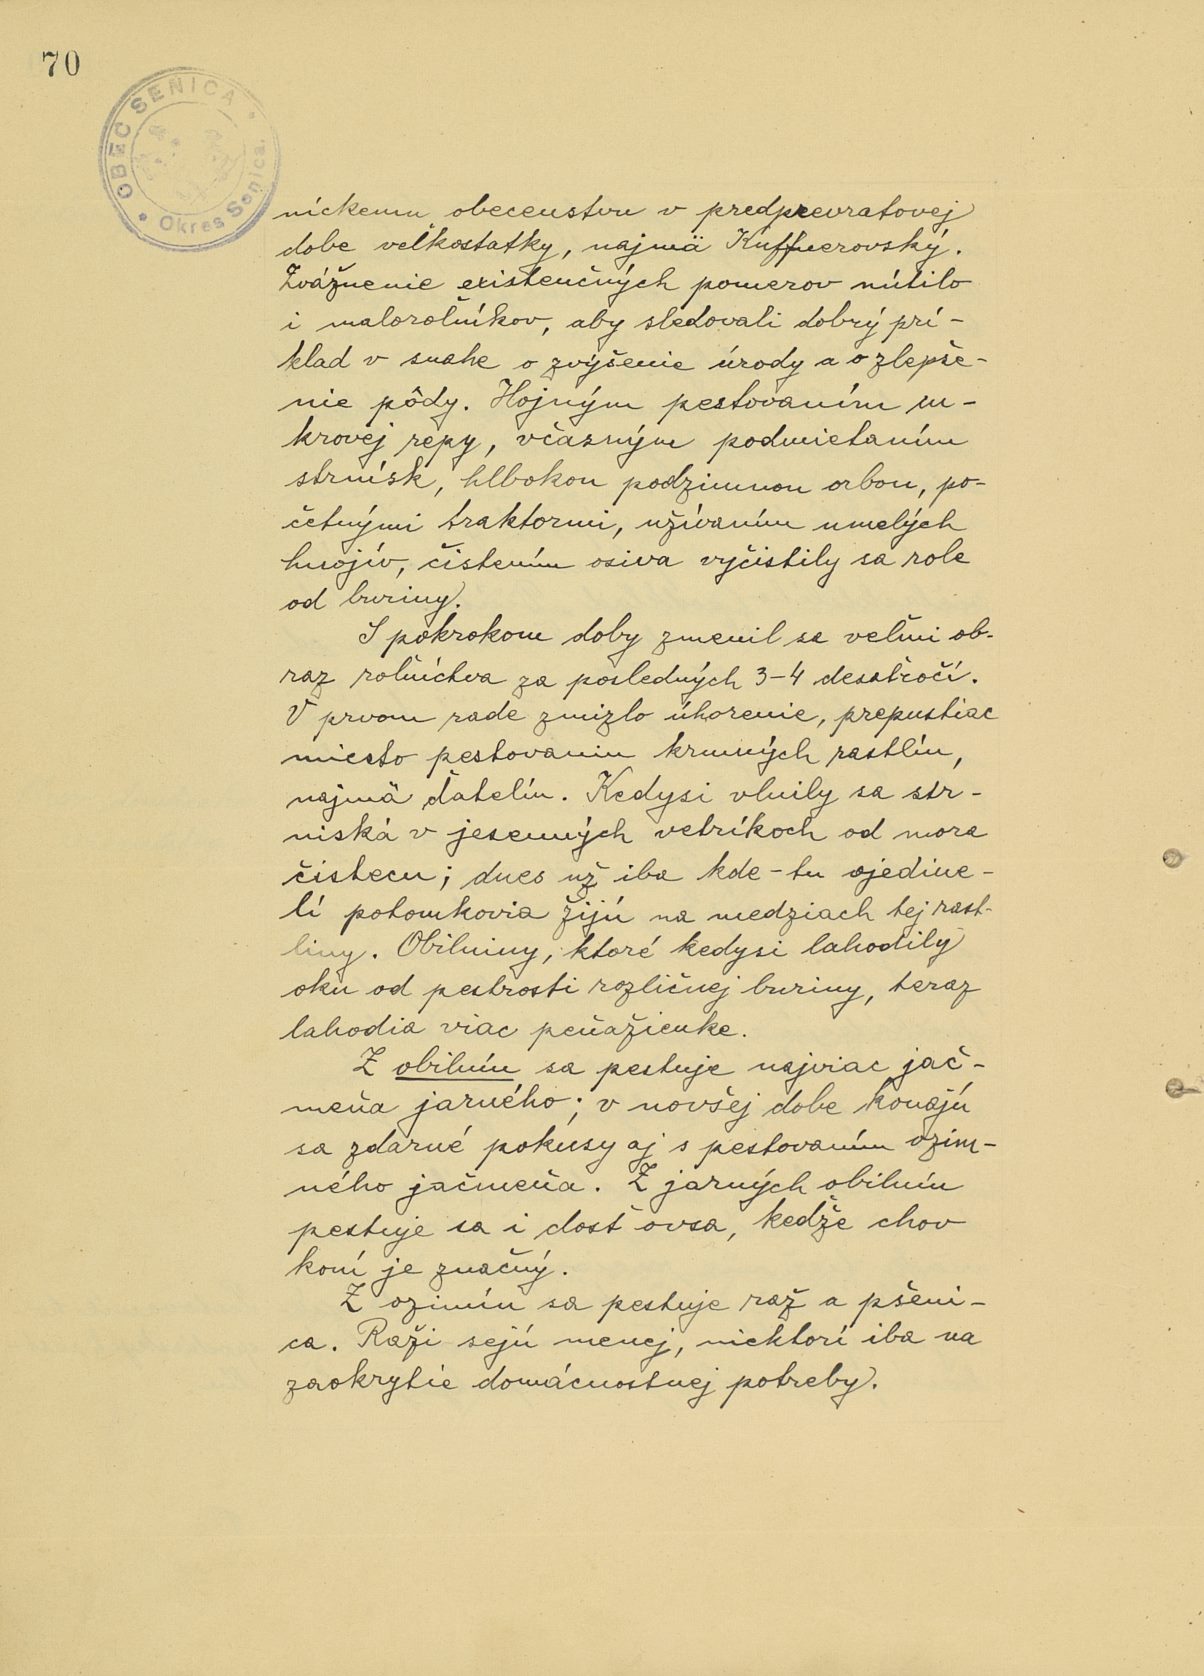 70
OBEC SENICA
Okres Senica.
níckemu obecenstvu v predprevratovej
dobe veľkostatky, najmä Kuffnerovský.
Zvážnenie existenčných pomerov nútilo
i maloroľníkov, aby sledovali dobrý prí-
klad v snahe o zvýšenie úrody a o zlepše-
nie pôdy. Hojným pestovaním cu-
krovej repy, včasným podmietaním
strnísk, hlbokou podzimnou orbou, po-
četnými traktormi, užívaním umelých
hnojív, čistením osiva vyčistily sa role
od buriny.
S pokrokom doby zmenil sa veľmi ob-
raz roľníctva za posledných 3-4 desaťročí.
V prvom rade zmizlo úhorenie, prepustiac
miesto pestovaniu krmných rastlín,
najmä ďatelín. Kedysi vlnily sa str-
niská v jesenných vetríkoch od mora
čistecu; dnes už iba kde-tu ojedine-
lí potomkovia žijú na medziach tej rast-
liny. Obilniny, ktoré kedysi lahodily
oku od pestrosti rozličnej buriny, teraz
lahodia viac peňaženke.
Z obilnín sa pestuje najviac jač-
meňa jarného; v novšej dobe konajú
sa zdarné pokusy aj s pestovaním ozim-
ného jačmeňa. Z jarných obilnín
pestuje sa i dosť ovsa, kedže chov
koní je značný.
Z ozimín sa pestuje raž a pšeni-
ca. Raži sejú menej, niektorí iba na
zaokrytie domácnostnej potreby.